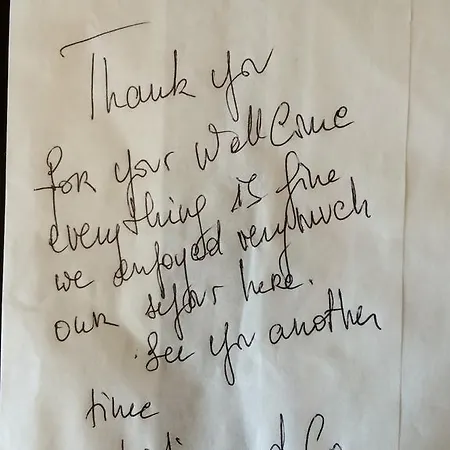 Thank you
for your Wellcome
everything is fine
we enjoyed very much
our here.
See you another
time